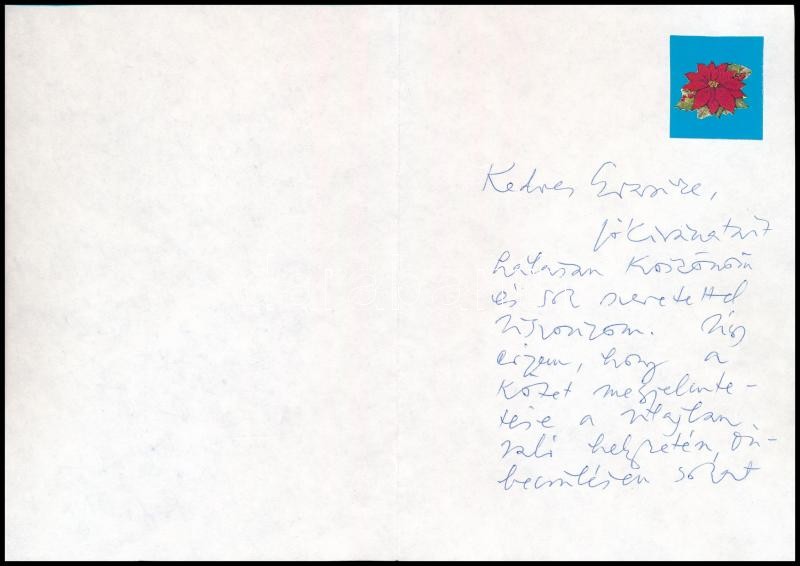 Kedves Erzsike,
jókívánatait
hálásan köszönöm
és sok szeretettel
viszonzom. Úgy
érzem, hogy a
kötet megjelente-
tése a világban
való helyzetén, ön-
becsülésén sokat